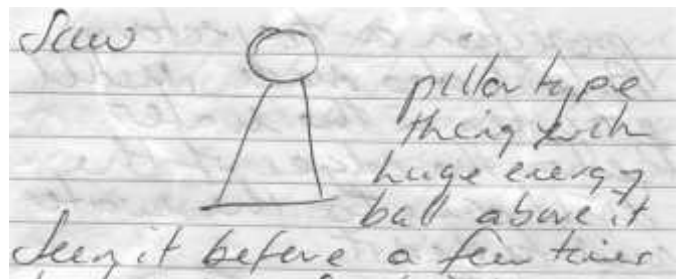 Saw
pillar type
thing with
huge energy
ball above it
Seen it before a few times